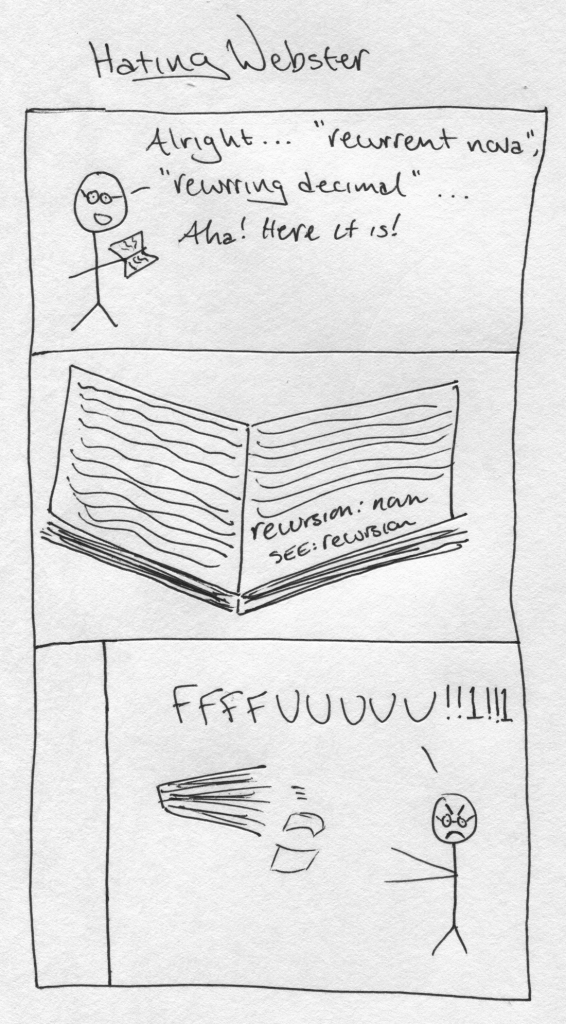 Hating Webster
Alright... "recurrent nova",
"recurring decimal" ...
Aha! Here it is!
recursion: noun
SEE: recursion
FFFFUUUUU!!1!!1